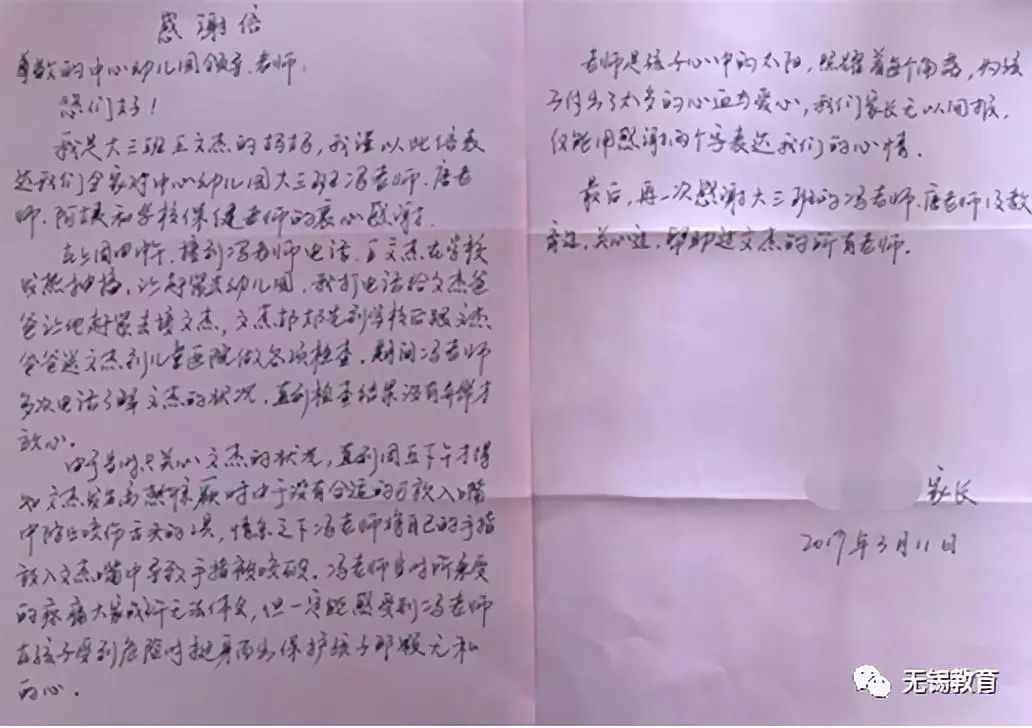 感谢信
尊敬的中心幼儿园领导、老师:
您们好!
我是大三班王文杰的妈妈,我谨以此信表
达我们全家对中心幼儿园大三班冯老师、唐老
师、阿姨和学校保健老师的衷心感谢!
在上周四中午,接到冯老师电话,王文杰在学校
发热抽搐,让赶紧去幼儿园,我打电话给文杰爸
爸让他赶紧去接文杰,文杰
爸爸送文杰到儿童医院做各项检查,期间冯老师
多次电话了解文杰的状况,直到检查结果没有异样才
放心。
由于当时只关心文杰的状况,直到周五下午才得
知文杰发生高热惊厥时由于没有合适的可放入嘴
中防止咬伤舌头的工具,情急之下冯老师将自己的手指
放入文杰嘴中导致手指被咬破。冯老师当时所承受
的疼痛大家或许无法体会,但一定能感受到冯老师
在孩子受到危险时挺身而出保护孩子那颗无私
的心。
老师是孩子心中的太阳,照耀着每个角落,为孩
子付出了太多的心血与爱心,我们家长无以回报,
仅能用感谢两个字表达我们的心情。
最后,再一次感谢大三班的冯老师、唐老师及教
育过、关心过、帮助过文杰的所有老师。
家长
2019年3月11日
无锡教育